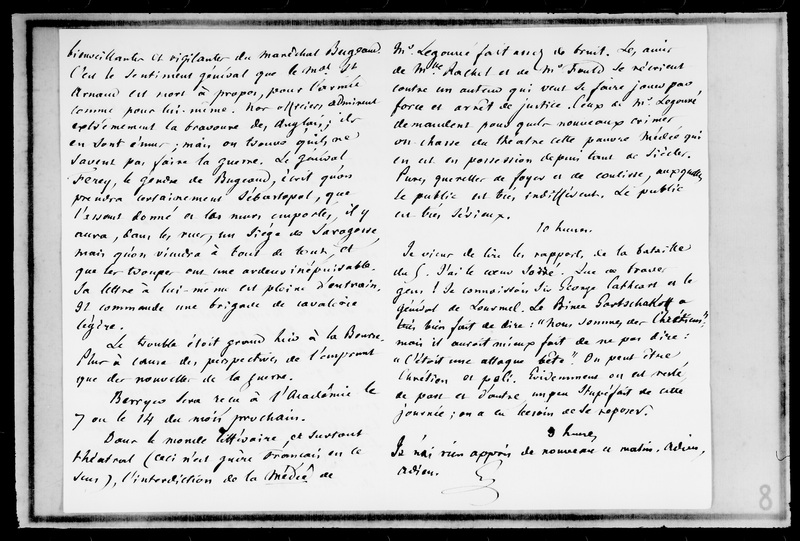 bienveillantes et vigilantes du maréchal Bugeaud.
C'est le sentiment général que le mal St
Arnaud est mort à propos, pour l'armée
comme pour lui-même. Nos officiers admirent
extrêmement la bravoure des Anglais; ils
en sont émus; mais on trouve qu'ils ne
savent pas faire la guerre. Le général
Férey, le gendre de Bugeaud, écrit qu'on
prendra certainement Sébastopol, que
l'assaut donné et les murs emportés, il y
aura, dans les rues, un siège de Saragosse,
mais qu'on viendra à bout de tout, et
que les troupes ont une ardeur inépuisable.
Sa lettre à lui-même est pleine d'entrain.
Il commande une brigade de cavalerie
légère.
Le trouble étoit grand hier à la Bourse.
Plus à cause des perspectives de l'emprunt
que des nouvelles de la guerre.
Berryer sera reçu à l'Académie le
7 ou le 14 du mois prochain.
Dans le monde littéraire, et surtout
théatral (ceci n'est guère français en ce
sens), l'interdiction de la Médée de
Mr Legouvé fait assez de bruit. Les amis
de Mlle Rachel et de Mr Fould se récrient
contre un auteur qui veut se faire jouer par
force et arrêt de justice. Ceux de Mr Legouvé,
demandent pour quels nouveaux crimes
on chasse du théatre cette pauvre Médée qui
en est en possession depuis tant de siècles.
Pures querelles de foyer et de coulisse, auxquelles
le public est très indifférent. Le public
est très sérieux.
10 heures.
Je viens de lire les rapports de la bataille
du 5. J'ai le cœur serré. Que de braves
gens! Je connoissois Sir George Cathcart et le
général de Lourmel. Le Prince Gortschakoff a
très bien fait de dire: "Nous sommes des Chrétiens";
mais il auroit mieux fait de ne pas dire:
"C'étoit une attaque bête". On peut être
Chrétien et poli. Evidemment on est resté
de part et d'autre un peu stupéfait de cette
journée; on a eu besoin de se reposer.
9 heures
Je n'ai rien appris de nouveau ce matin. Adieu,
Adieu.
G
8